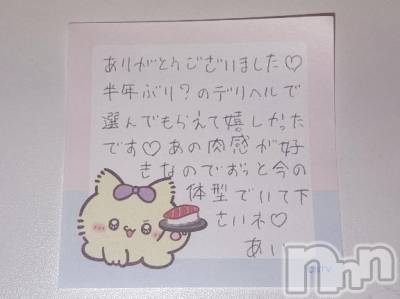 ありがとうございました♡
半年ぶり?のデリヘルで
選んでもらえて嬉しかった
です♡あの肉感が好
きなのでずっと今の
体型でいて下
さいネ♡
あい
nnn